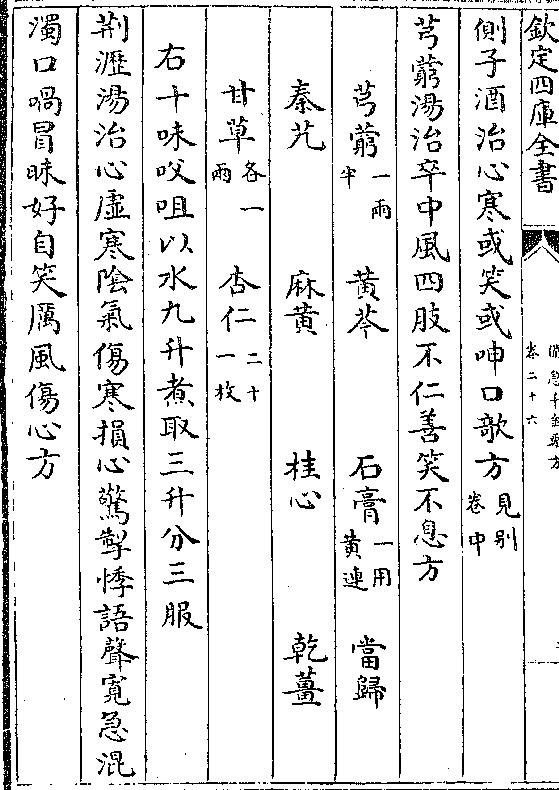 欽定四庫全書
備急千金要方
卷二十六
側子酒治心寒或笑或呻口欹方見别卷中
芎藭湯治卒中風四肢不仁善笑不息方
芎藭一兩半 黄芩 石膏一用黄連 當歸
秦艽 麻黄 桂心 乾薑
甘草各一兩 杏仁二十一枚
右十味㕮咀以水九升煮取三升分三服
荆瀝湯治心虚寒陰氣傷寒損心驚掣悸語聲寛急混
濁口喎冒昧好自笑厲風傷心方